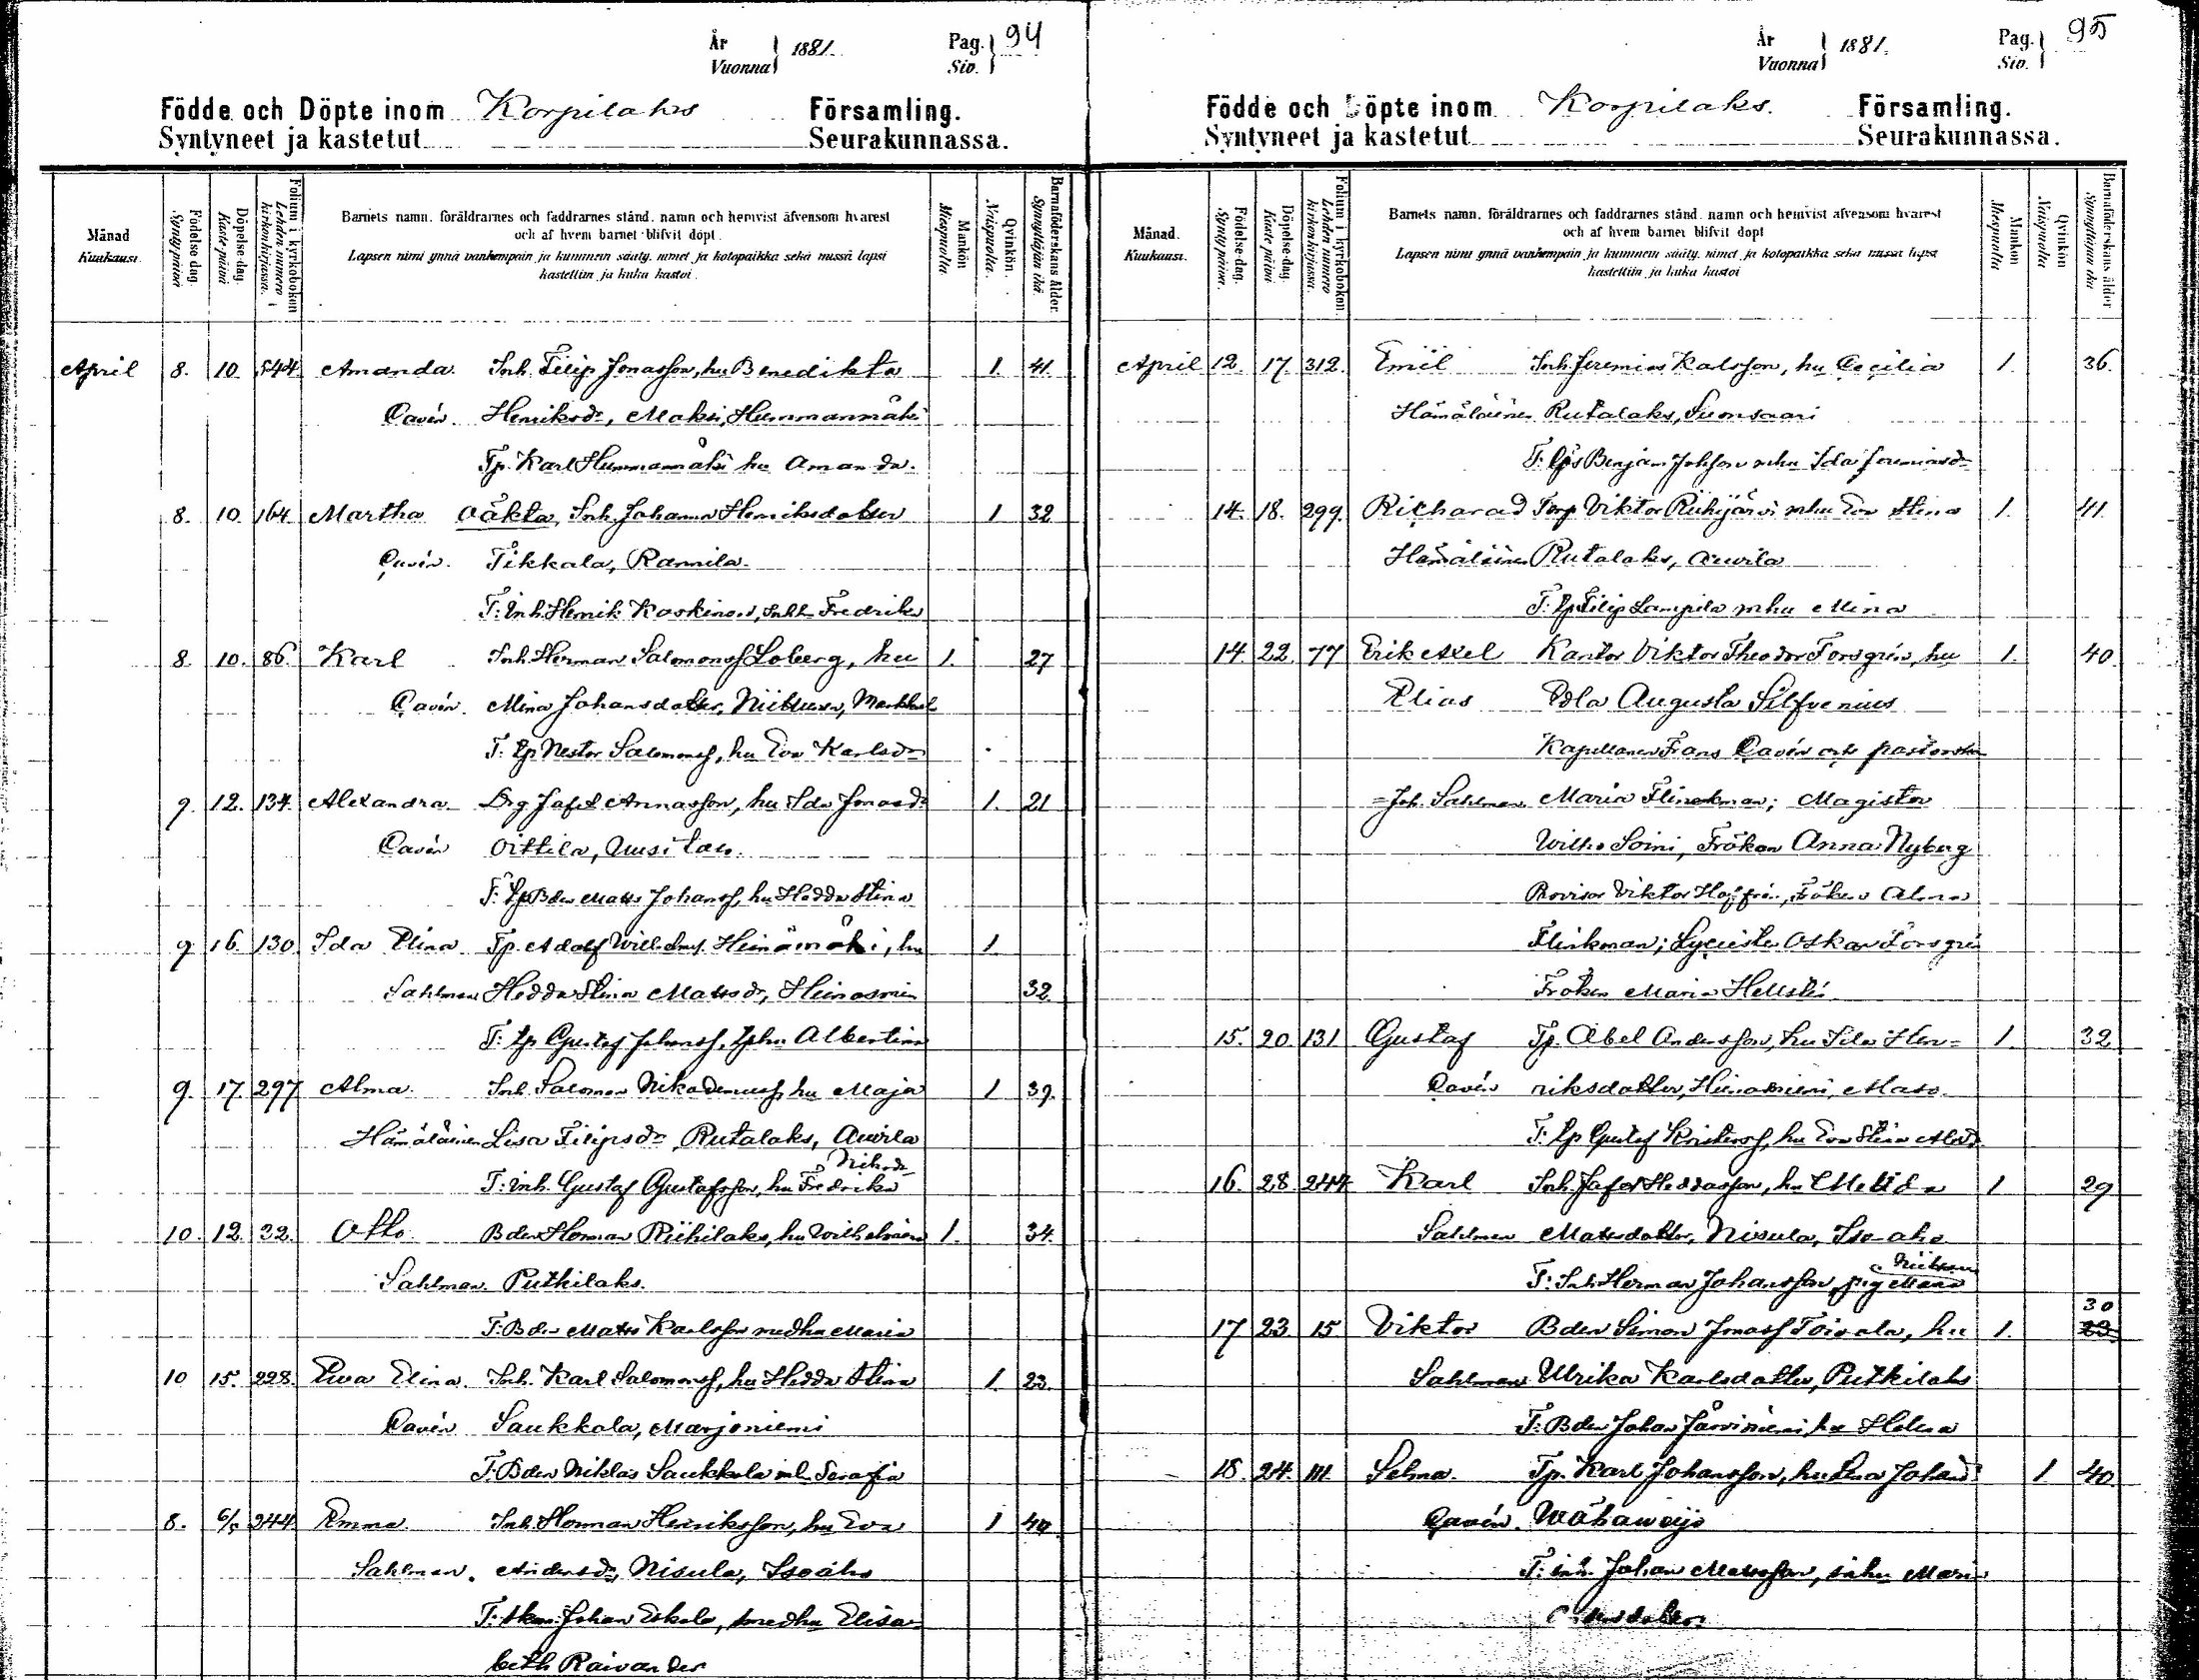 År
Vuonna } 1881. Pag.
Siv. } 94
Födde och Döpte inom Korpilaks Församling.
Syntyneet ja kastetut Seurakunnassa.
Månad
Kuukausi.
Födelse-dag.
Syntypäivä
Döpelse-dag.
Kastepäivä
Folium i kyrkoboken
Lehden numero kirkonkirjassa.
Barnets namn, föräldrarnes och faddrarnes stånd, namn och hemvist äfvensom hvarest
och af hvem barnet blifvit döpt.
Lapsen nimi ynnä vanhempain ja kummein sääty, nimet ja kotopaikka sekä missä lapsi
kastettiin ja kuka kastoi.
Mankön
Miespuolia
Qvinkön.
Naispuolia.
Barnaföderskans ålder.
Synnyttäjän ikä
April 8. 10. 544 Amanda. Inh. Filip Jonasson, hu Benedikta 1. 41.
Cavén. Henriksdr, Maksi, Hummanmäki
Tp. Karl Hummanmäki hu Amanda.
8. 10. 164 Martha oäkta, Inh. Johanna Henriksdotter 1 32
Cavén. Tikkala, Rannila.
F: Inh. Henrik Koskinen, Fredrika
8. 10. 86 Karl Inh. Herman Salomonss Loberg, hu 1. 27
Cavén. Mina Johansdotter, Niittuen,
F: Tp Nestor Salomonss, hu Eva Karlsdr
9. 12. 134. Alexandra Drg Jafet Annasson, hu Ida Jonasdr 1. 21
Cavén Oittila, Uusitalo.
F: Bden Matts Johanss, hu Hedda Stina
9 16. 130. Ida Elina. Tp. Adolf Wilhelmss. Heinämäki, hu 1.
Sahlman Hedda Stina Mattsdr, Heinosniemi 32.
F: Tp Gustaf Johanss, hu Albertina
9. 17. 297 Alma. Inh. Salomon Nikodemuss, hu Maja 1 39.
Hämäläinen Lisa Filipsdr, Rutalaks, Auvila
F: Inh. Gustaf Gustafsson, hu Fredrika Nikodr
10. 12. 32. Otto. Bden Herman Riihilaks, hu Wilhelmina 1. 34.
Sahlman. Putkilaks.
F: Bden Matts Karlsson medhu Maria
10 15. 228. Eva Elina. Inh. Karl Salomonss, hu Hedda Stina 1. 23.
Cavén Saukkola, Marjoniemi
F: Bden Niklas Saukkola Serafia
8. 6/5 244 Emma. Inh. Herman Henriksson, hu Eva 1 40
Sahlman. Andersdr, Nisula, Isoaho
F: Johan Eskola, medhu Elisa-
beth Raivander
År
Vuonna } 1881. Pag.
Siv. } 95
Födde och Döpte inom Korpilaks. Församling.
Syntyneet ja kastetut Seurakunnassa.
Månad.
Kuukausi.
Födelse-dag.
Syntypäivä.
Döpelse-dag.
Kastepäivä
Folium i kyrkoboken.
Lehden numero kirkonkirjassa.
Barnets namn, föräldrarnes och faddrarnes stånd, namn och hemvist äfvensom hvarest
och af hvem barnet blifvit döpt
Lapsen nimi ynnä vanhempain ja kummein sääty, nimet ja kotopaikka sekä missä lapsi
kastettiin ja kuka kastoi
Mankön
Miespuolia
Qvinkön
Naispuolia
Barnaföderskans ålder
Synnyttäjän ikä
April 12. 17. 312. Emil Inh. Jeremias Kalsson, hu Cecilia 1. 36.
Hämäläinen Rutalaks, Suonsaari
F: Benjam Johsson mhu Ida Jeremiasdr
14. 18. 299. Richarad Torp Viktor Riihijärvi mhu Eva Stina 1. 41.
Hämäläinen Rutalaks, Auvila
F: Tp Filip Lampila mhu Mina
14. 22. 77 Erik Axel Kantor Viktor Theodor Forsgrén, hu 1. 40.
Elias Edla Augusta Silfvenius
Kapellanen Frans Cavén och pastorskan
=Joh. Sahlman Maria Flinckman; Magister
Wilho Soini, Fröken Anna Nyberg
Provisor Viktor Hoffrén, Fröken Alma
Flinkman; Lyceisten Oskar Forsgrén
Fröken Maria Hellstén
15. 20. 131 Gustaf Tp. Abel Andersson, hu Ida Hen= 1. 32
Cavén riksdotter, Heinosniemi, Maso.
F: Tp Gustaf Kristerss, hu Eva Stina
16. 28. 244 Karl Inh. Jafet Heddasson, hu Melida 1 29
Sahlman Mattsdotter, Nisula, Isoaho
F: Inh. Herman Johansson, pig Maria
17 23. 15 Viktor Bden Simon Jonass Toivola, hu 1. 30
Sahlman Ulrika Karlsdotter, Putkilaks
F: Bden Johan Järviniemi, hu Helena
18. 24. 111. Selma. Tp. Karl Johansson, hu Lena Johansdr 1 40.
Cavén. Wähäwoijo
F: inh. Johan Mattsson, Maria